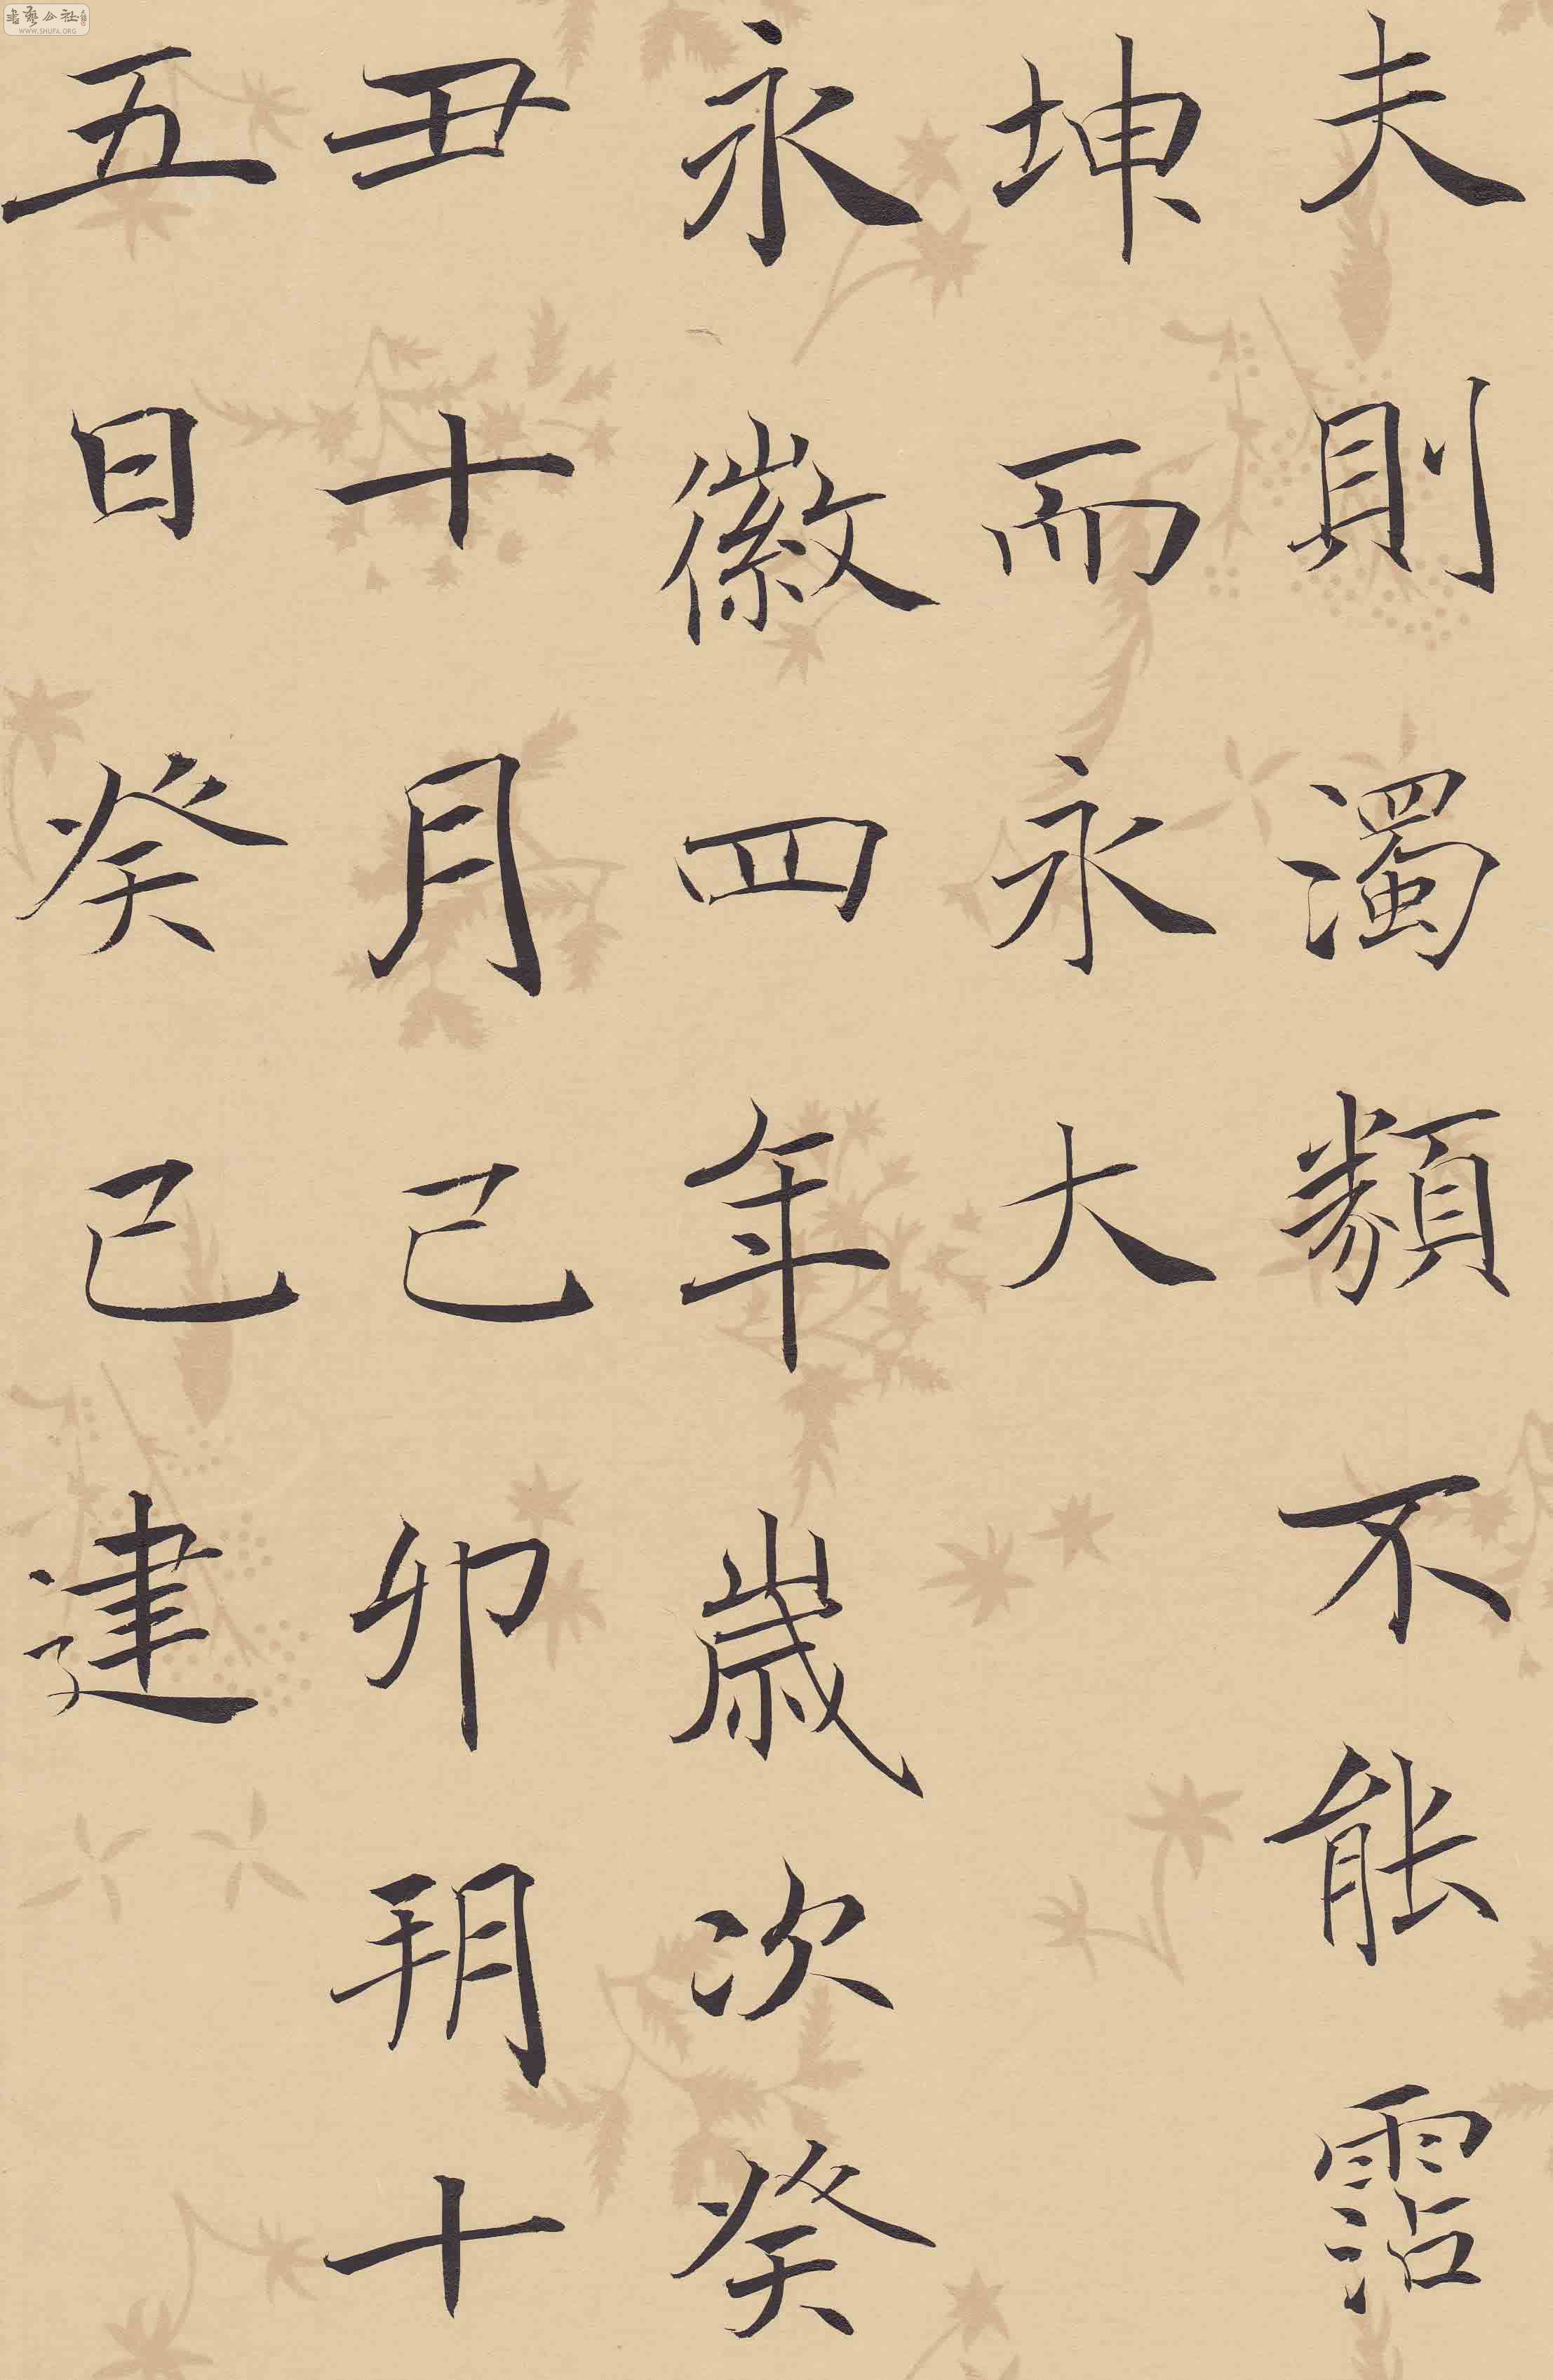 夫則濁類不能霑
坤而永大
永徽四年歲次癸
丑十月己卯朔十
五日癸巳建
書藝公社
WWW.SHUFA.ORG